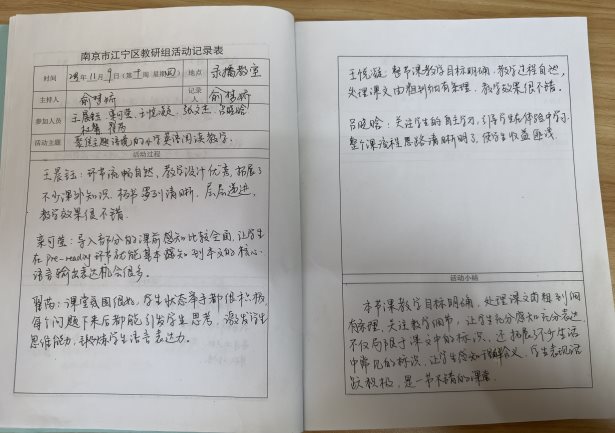 南京市江宁区教研组活动记录表
时间 年11月9日(第十周 星期四) 地点 录播教室
主持人 俞梦娇 记录人 俞梦娇
参加人员 王晨钰 张文杰 吕晗晗
活动主题 基于主题语境的小学英语阅读教学。
活动过程
王晨钰:环节流畅自然,教学设计优秀,拓展了
不少课外知识。板书罗列清晰,层层递进,
教学效果很不错。
:导入部分的课前感知比较全面,让学生
在Pre-reading环节就能基本感知到本文的核心
语言,输出表达机会很多。
翟芮:课堂氛围很好,学生状态举手都很积极,
每个问题下来后都能引发学生思考,激发学生
思维能力,锻炼学生语言表达力。
王悦凝:整节课教学目标明确,教学过程自然,
处理课文由粗到细有条理,教学效果很不错。
吕晗晗:关注学生的自主学习,引导学生在体验中学习,
整个课流程思路清晰明了,使学生收益匪浅。
活动小结
本节课教学目标明确,处理课文由粗到细
有条理,关注教学细节,让学生充分感知充分表达
不仅局限于课文中的标识,还拓展了不少生活
中常见的标识,让学生感知理解含义。学生表现活
跃积极,是一节不错的课堂。